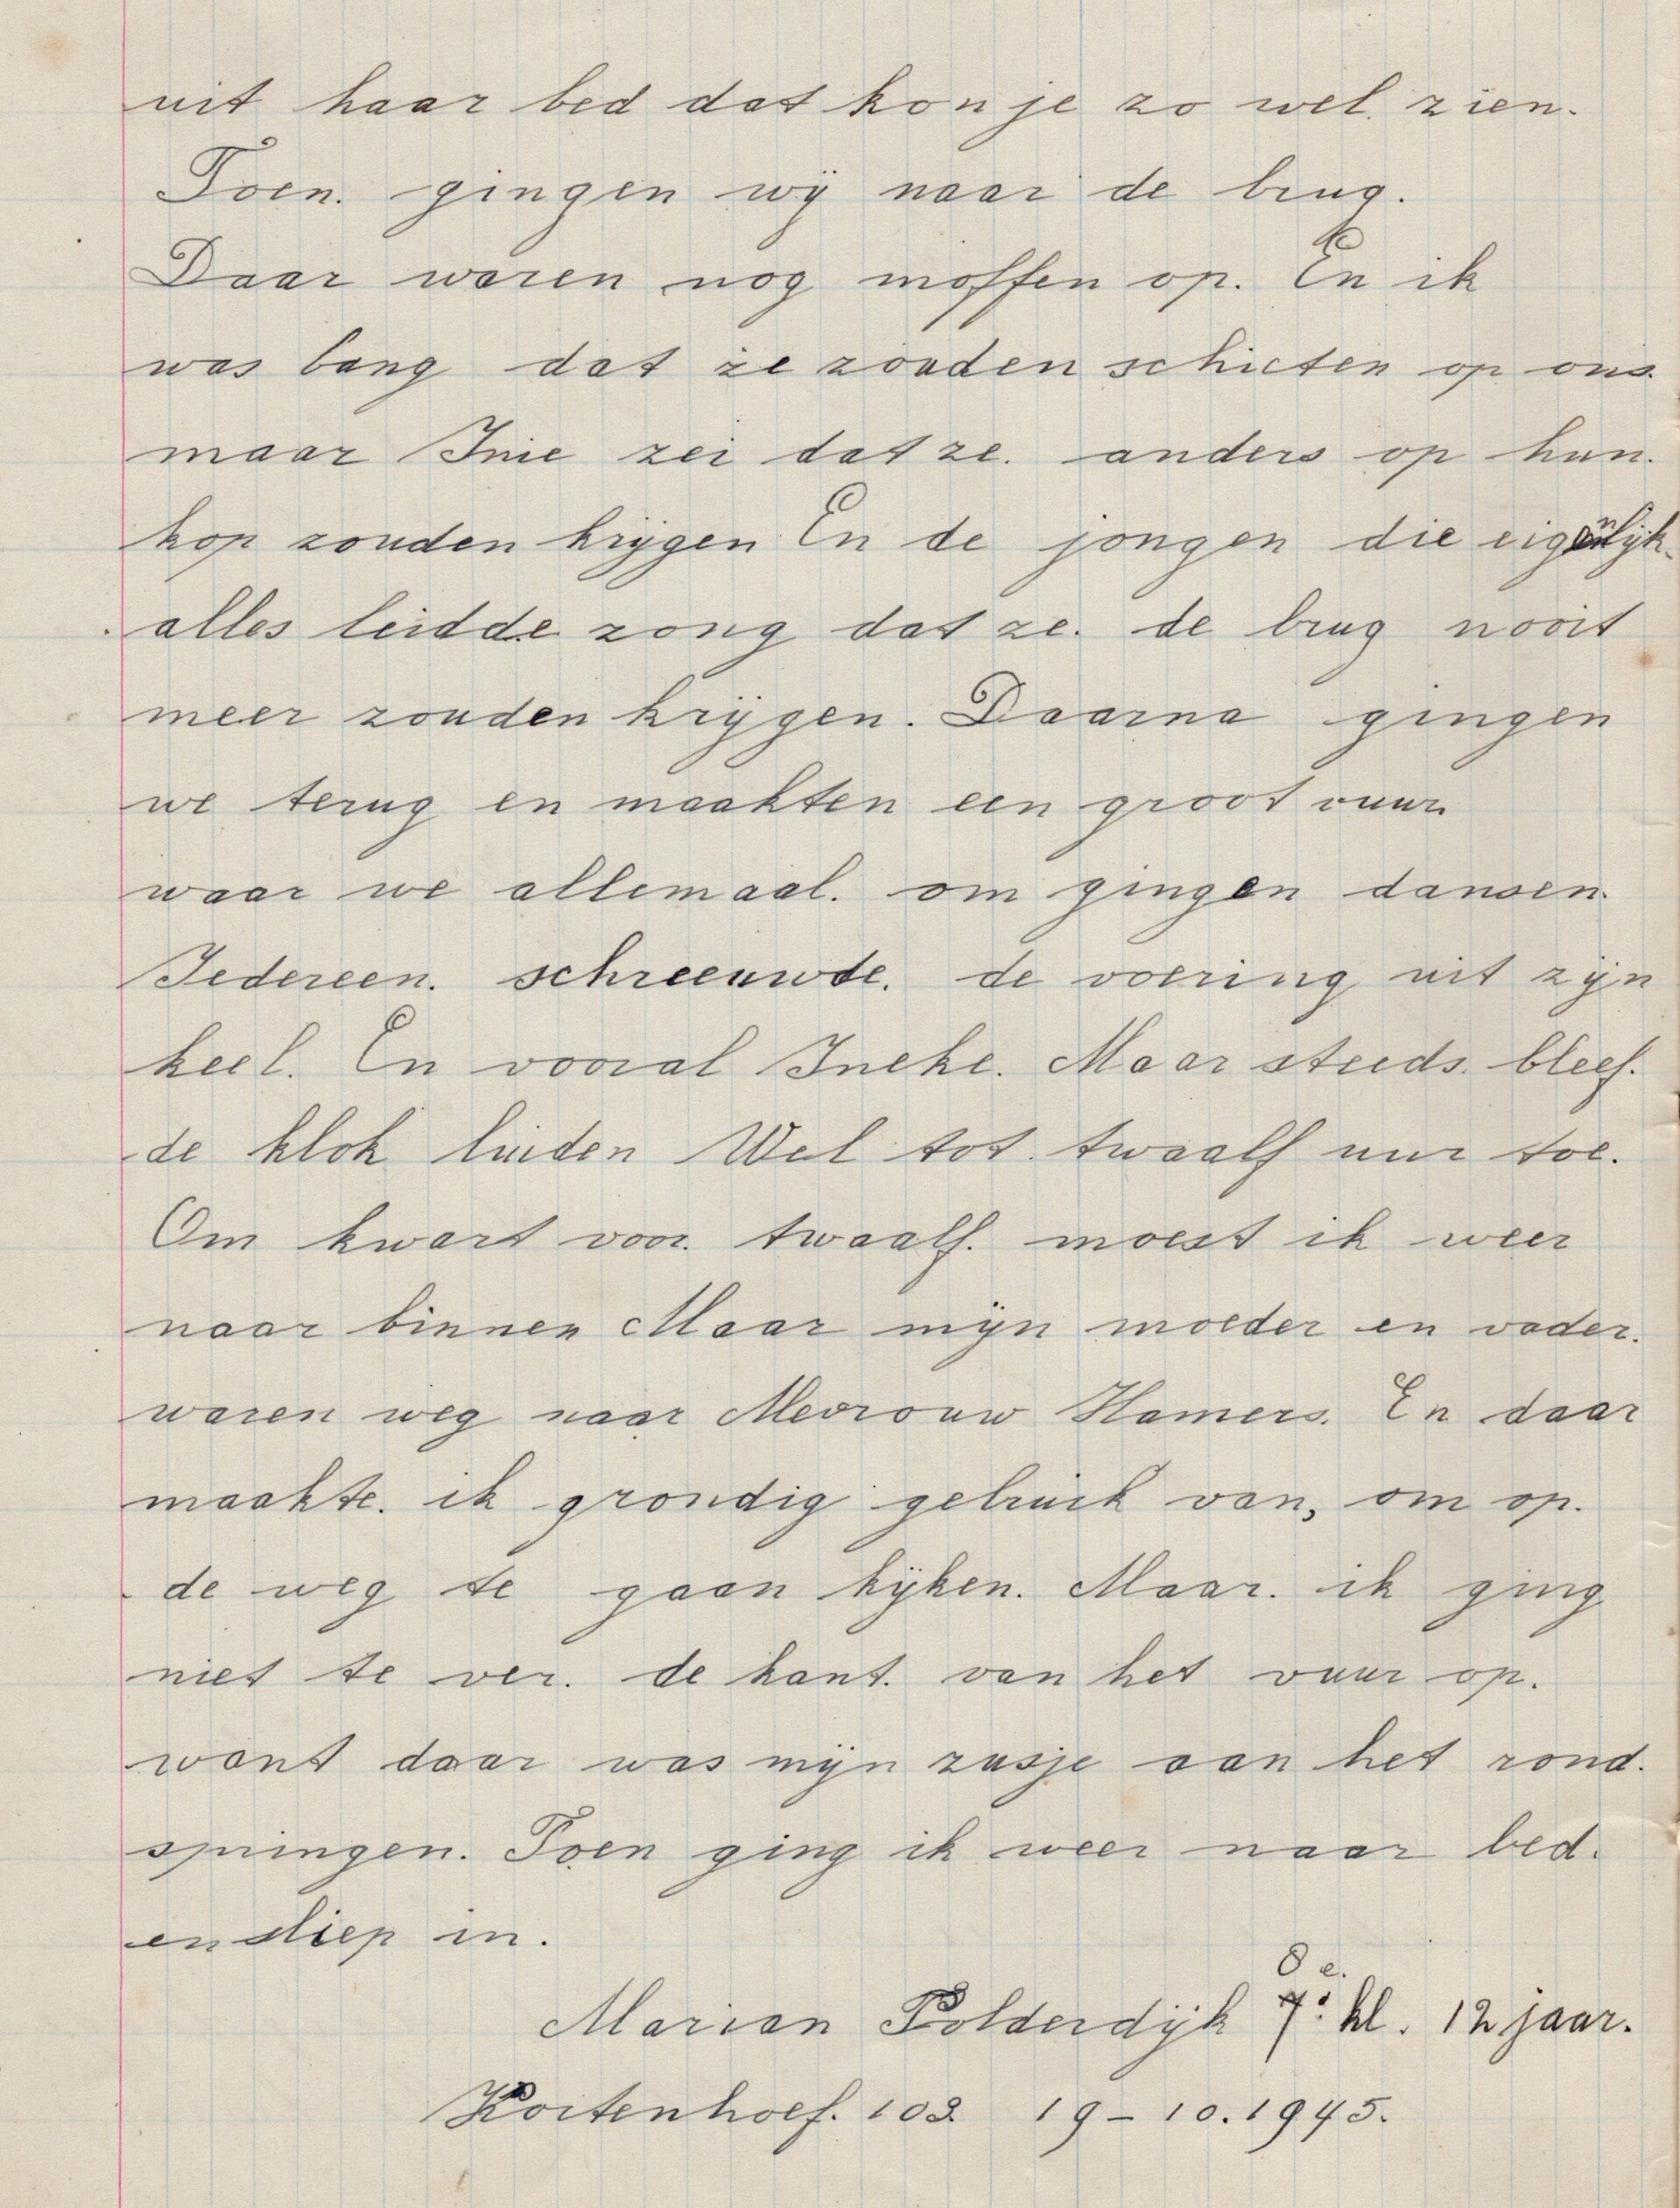 uit haar bed dat kon je zo wel zien.
Toen. gingen wij naar de brug.
Daar waren nog moffen op. En ik
was bang dat ze zouden schieten op ons.
maar Inie zei dat ze. anders op hun.
kop zouden krijgen En de jongen die eigenlijk
alles leidde zong dat ze. de brug nooit
meer zouden krijgen. Daarna gingen
we terug en maakten een groot vuur
waar we allemaal. om gingen dansen.
Iedereen. schreeuwde. de voering uit zijn
keel. En vooral Ineke. Maar steeds bleef.
de klok luiden Wel tot. twaalf uur toe.
Om kwart voor. twaalf. moest ik weer
naar binnen Maar mijn moeder en vader.
waren weg naar Mevrouw Hamers. En daar
maakte. ik grondig gebruik van, om op.
de weg te gaan kijken. Maar. ik ging
niet te ver. de kant. van het vuur op.
want daar was mijn zusje aan het rond.
springen. Toen ging ik weer naar bed.
en sliep in.
8e.
Marian Polderdijk 7e kl. 12 jaar.
Kortenhoef. 103. 19-10.1945.